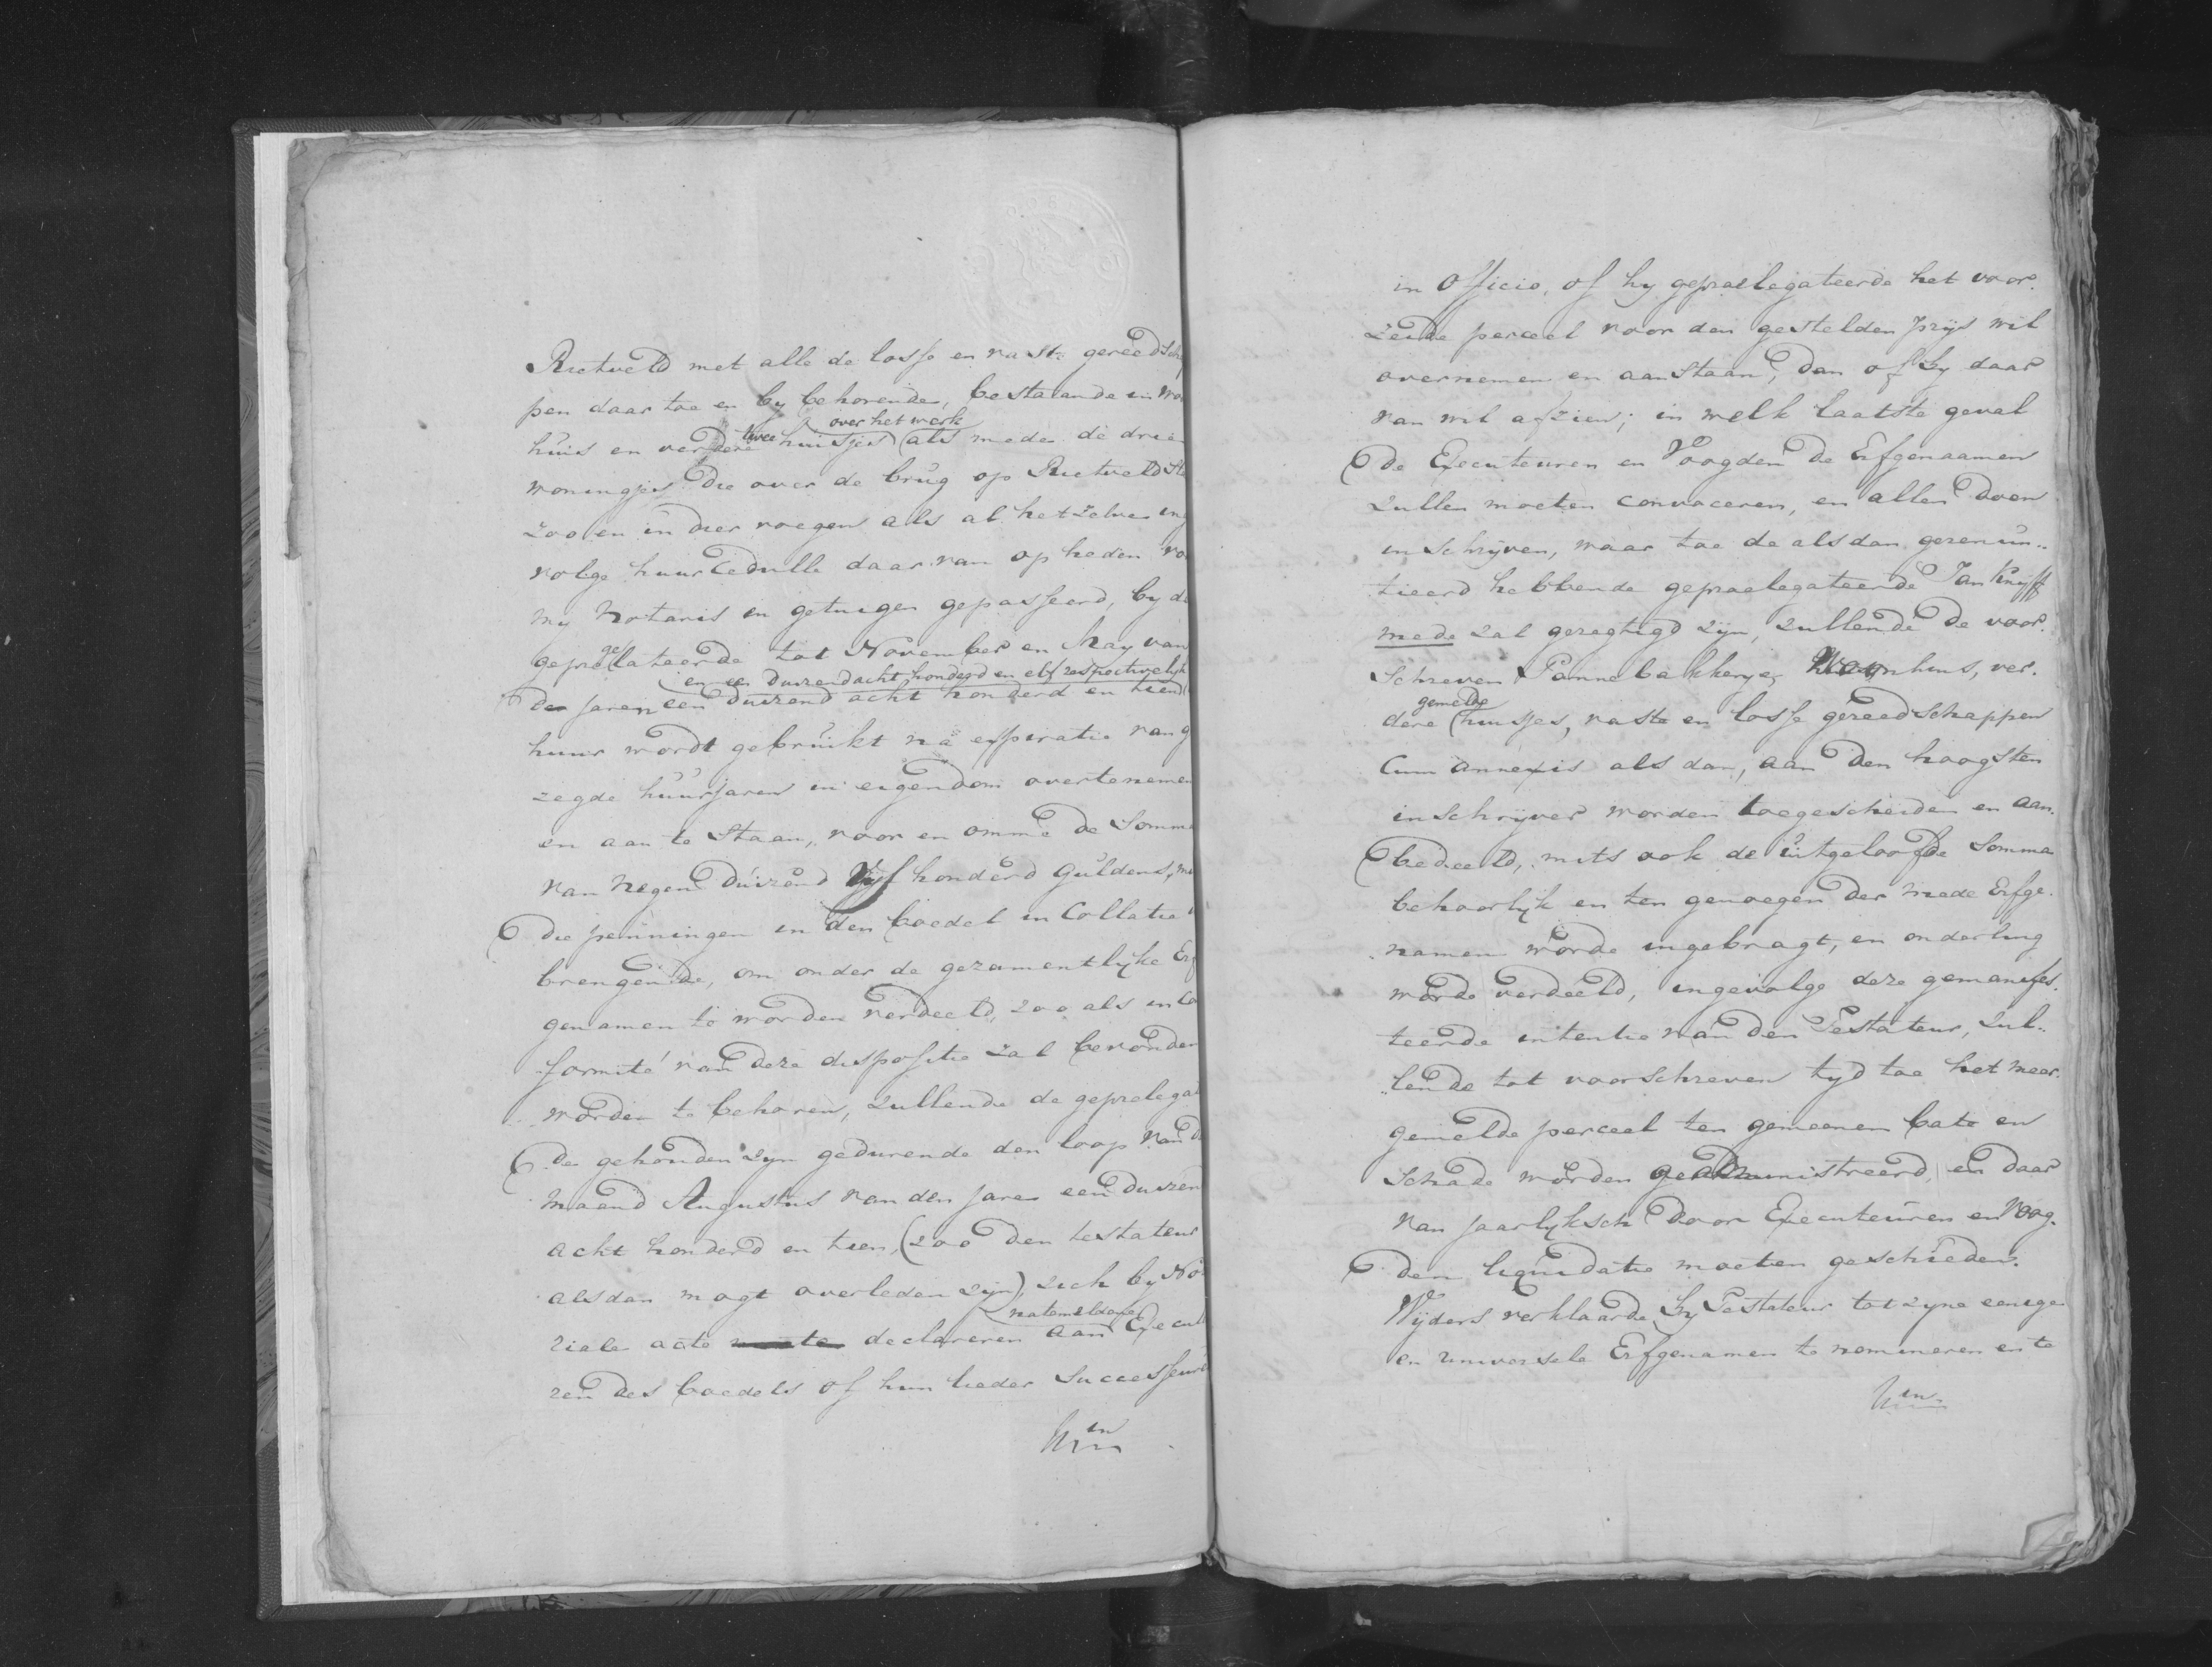 Rietveld met alle de losse en vaste gereedsch
pen daar toe en by behorende, bestaande in wo
over het werk
huis en verdere twee huisjes als mede de drie
woningjes die over de brug op Rietveld st
zoo en in dier voegen als al hetzelve in
volge huur Cedulle daar van op heden vo
my Notaris en getuigen gepasseerd, by de
geprelegateerde tot November en May van
en een duizend acht honderd en elf respectivelyk
de jaren een duizend acht honderd en tien
huur wordt gebruikt na expiratie van g
zegde huurjaren in eigendom overtenemen
en aan te staan, voor en omme de Somma
van negen duizend Vyf honderd Guldens, m
die penningen in den boedel in Collatie
brengende, om onder de gezamentlyke Erf
genamen te worden verdeeld, zoo als in Co
formité van deze dispositie zal bevonden
worden te behoren, zullende de geprelegat
de gehouden zyn gedurende den loop van d
maand Augustus van den jare een duizen
acht honderd en tien, (zoo den testateur
alsdan mogt overleden zyn), zich by No
natemeldene
riale acte declareren aan Execut
ren des boedels of hun lieder Successeur
in
in Officio, of hy gepraelegateerde het voor.
zeide perceel voor den gestelden prys wil
overnemen en aanstaan, dan of hy daar
van wil afzien; in welk laatste geval
de Executeuren en Voogden de Erfgenaamen
zullen moeten convoceren, en allen doen
inschryven, waar toe de alsdan gerenun..
tieerd hebbende gepraelegateerde Jan Knyff
mede zal geregtigd zyn, zullende de voor.
schreven Pannebakkerye, Woonhuis, ver.
gemelde
dere huisjes, vaste en losse gereedschappen
Cum annexis als dan, aan den hoogsten
inschryver worden toegescheiden en aan.
bedeeld, mits ook de uitgeloofde Somma
behoorlyk en ten genoegen der mede Erfge.
namen worde ingebragt, en onderling
worde verdeeld, ingevolge deze gemanifes.
teerde intentie van den Testateur, zul..
..lende tot voorschreven tyd toe het meer.
gemelde perceel ten gemeenen bate en
schade worden geadministreerd, en daar
van jaarlyksch door Executeuren en Voog.
den liquidatie moeten geschieden.
Wyders verklaarde hy Testateur tot zyne eenige
en universele Erfgenamen te nomineren en te
in